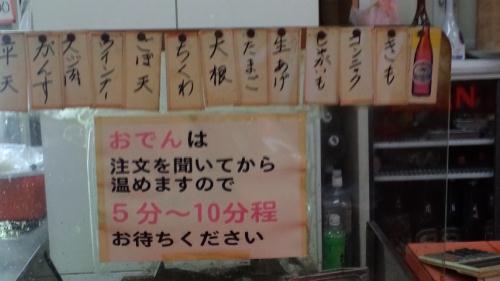 きも
コンニャク
じゃがいも
生あげ
たまご
大根
ちくわ
ごぼ天
ウインナー
がんす
平天
おでんは
注文を聞いてから
温めますので
5分〜10分程
お待ちください